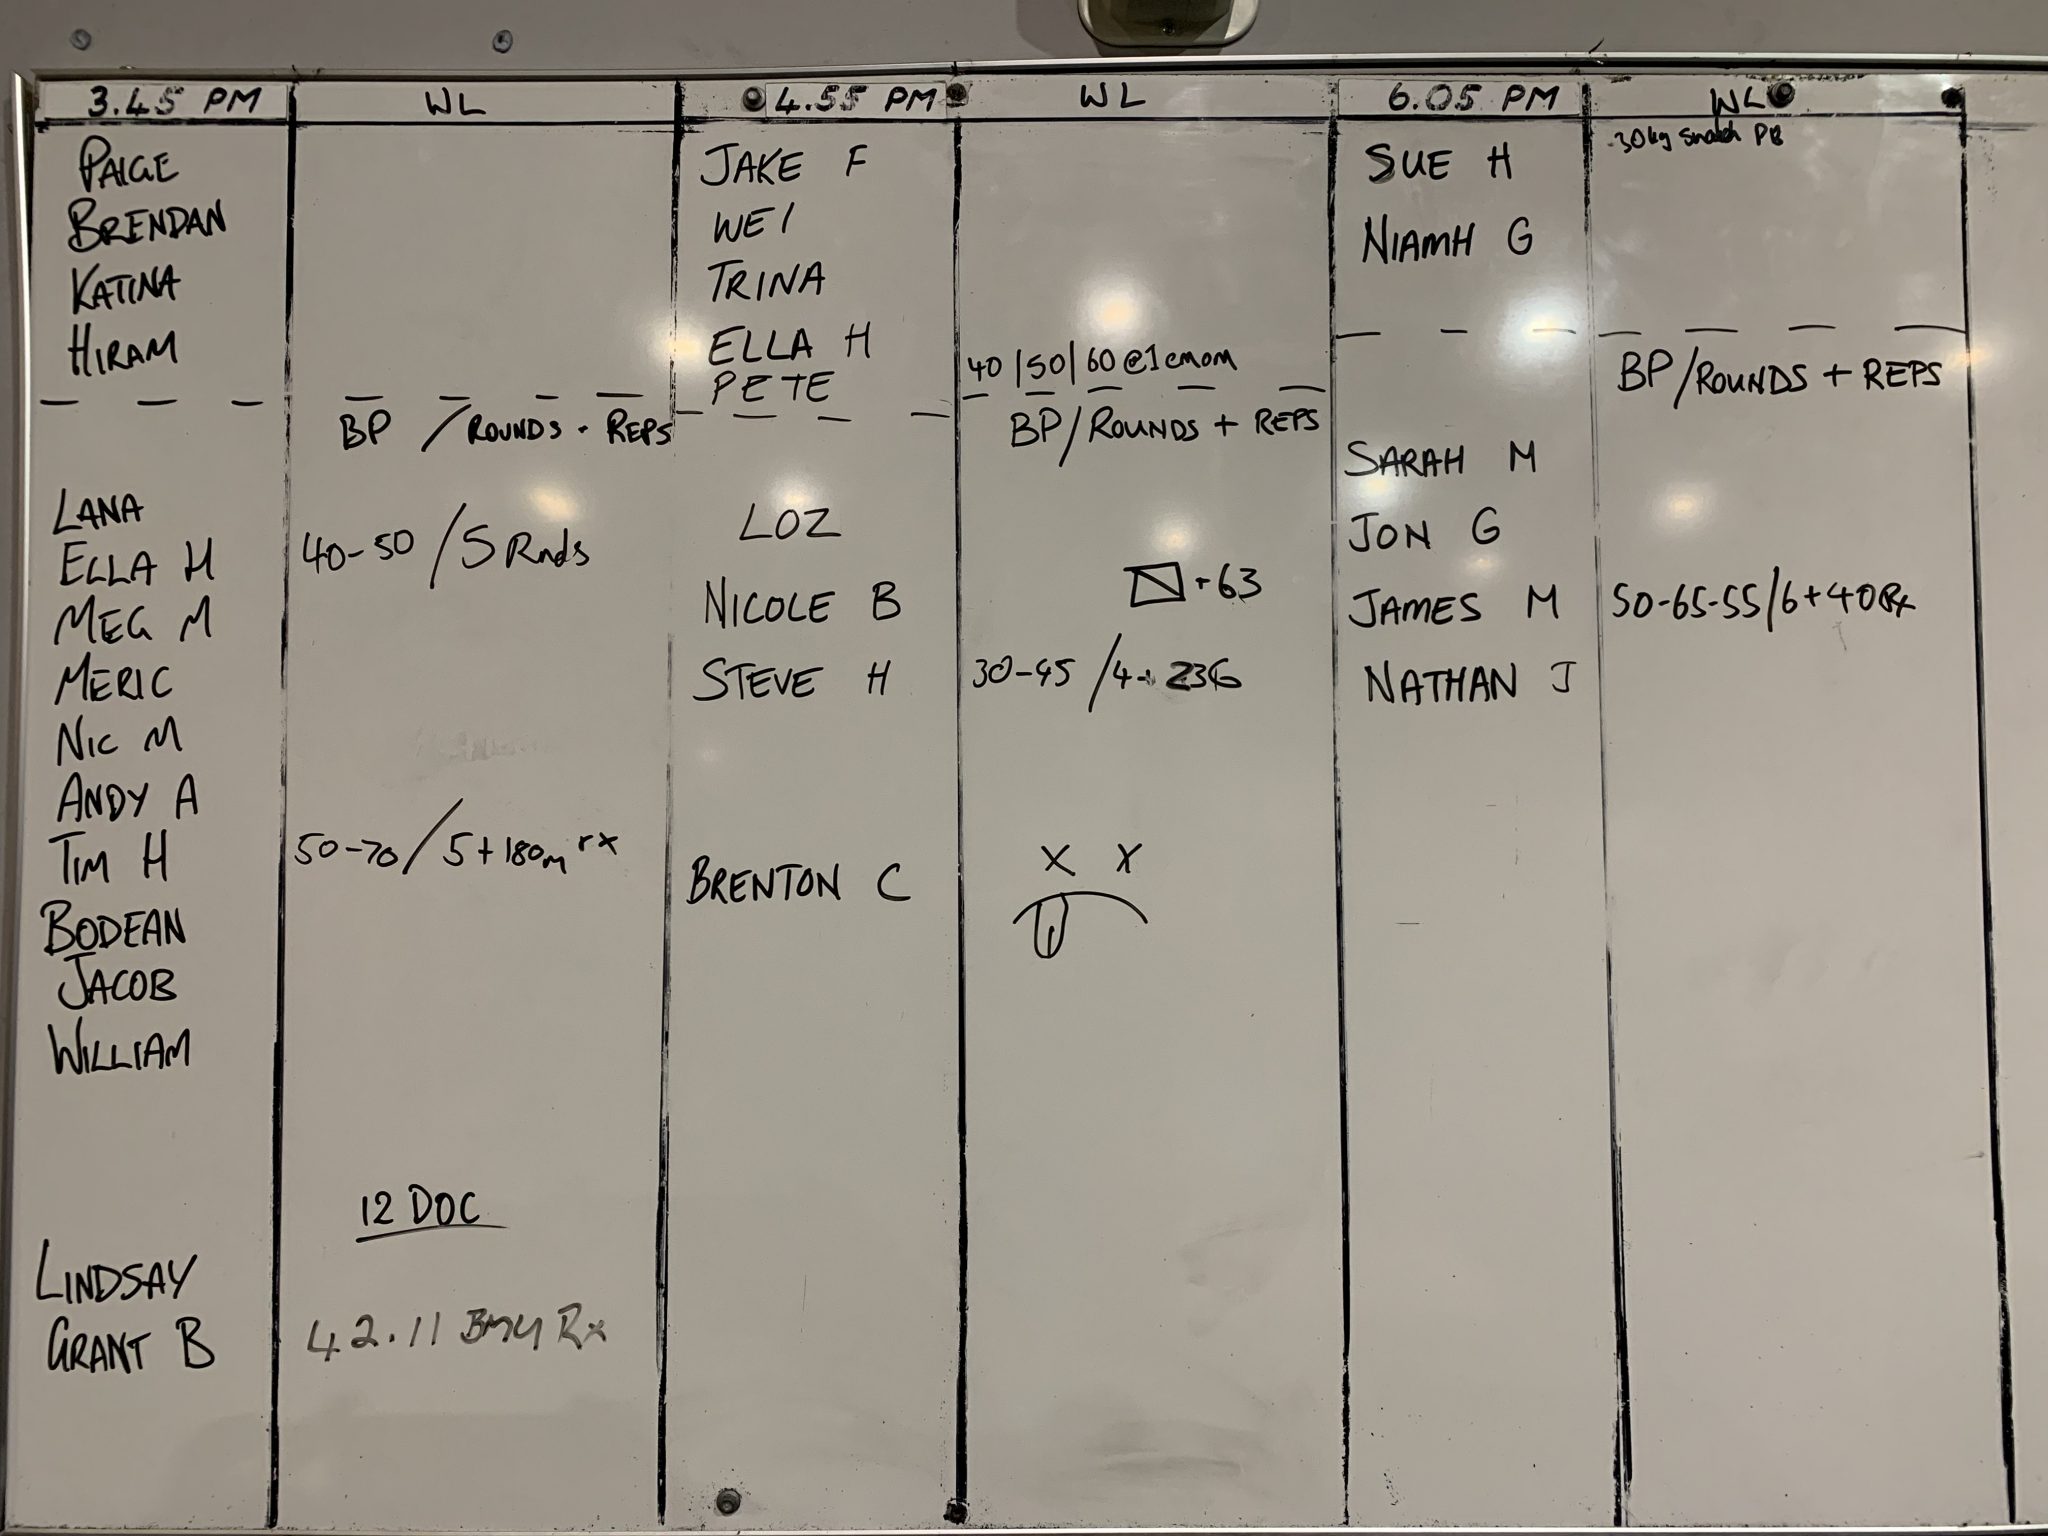 3.45 PM
WL
PAIGE
BRENDAN
KATINA
HIRAM
BP / ROUNDS + REPS
LANA
ELLA H
40-50 / 5 Rnds
MEG M
MERIC
NIC M
ANDY A
TIM H
50-70 / 5+180m rx
BODEAN
JACOB
WILLIAM
12 DOC
LINDSAY
GRANT B
42.11 Rx
4.55 PM
WL
JAKE F
WEI
TRINA
ELLA H
PETE
40 | 50 | 60 @ 1 emom
BP / ROUNDS + REPS
LOZ
NICOLE B
+63
STEVE H
30-45 / 4+ 236
BRENTON C
X X
6.05 PM
WL
SUE H
30kg Snatch PB
NIAMH G
BP / ROUNDS + REPS
SARAH M
JON G
JAMES M
50-65-55 / 6+40 Rx
NATHAN J